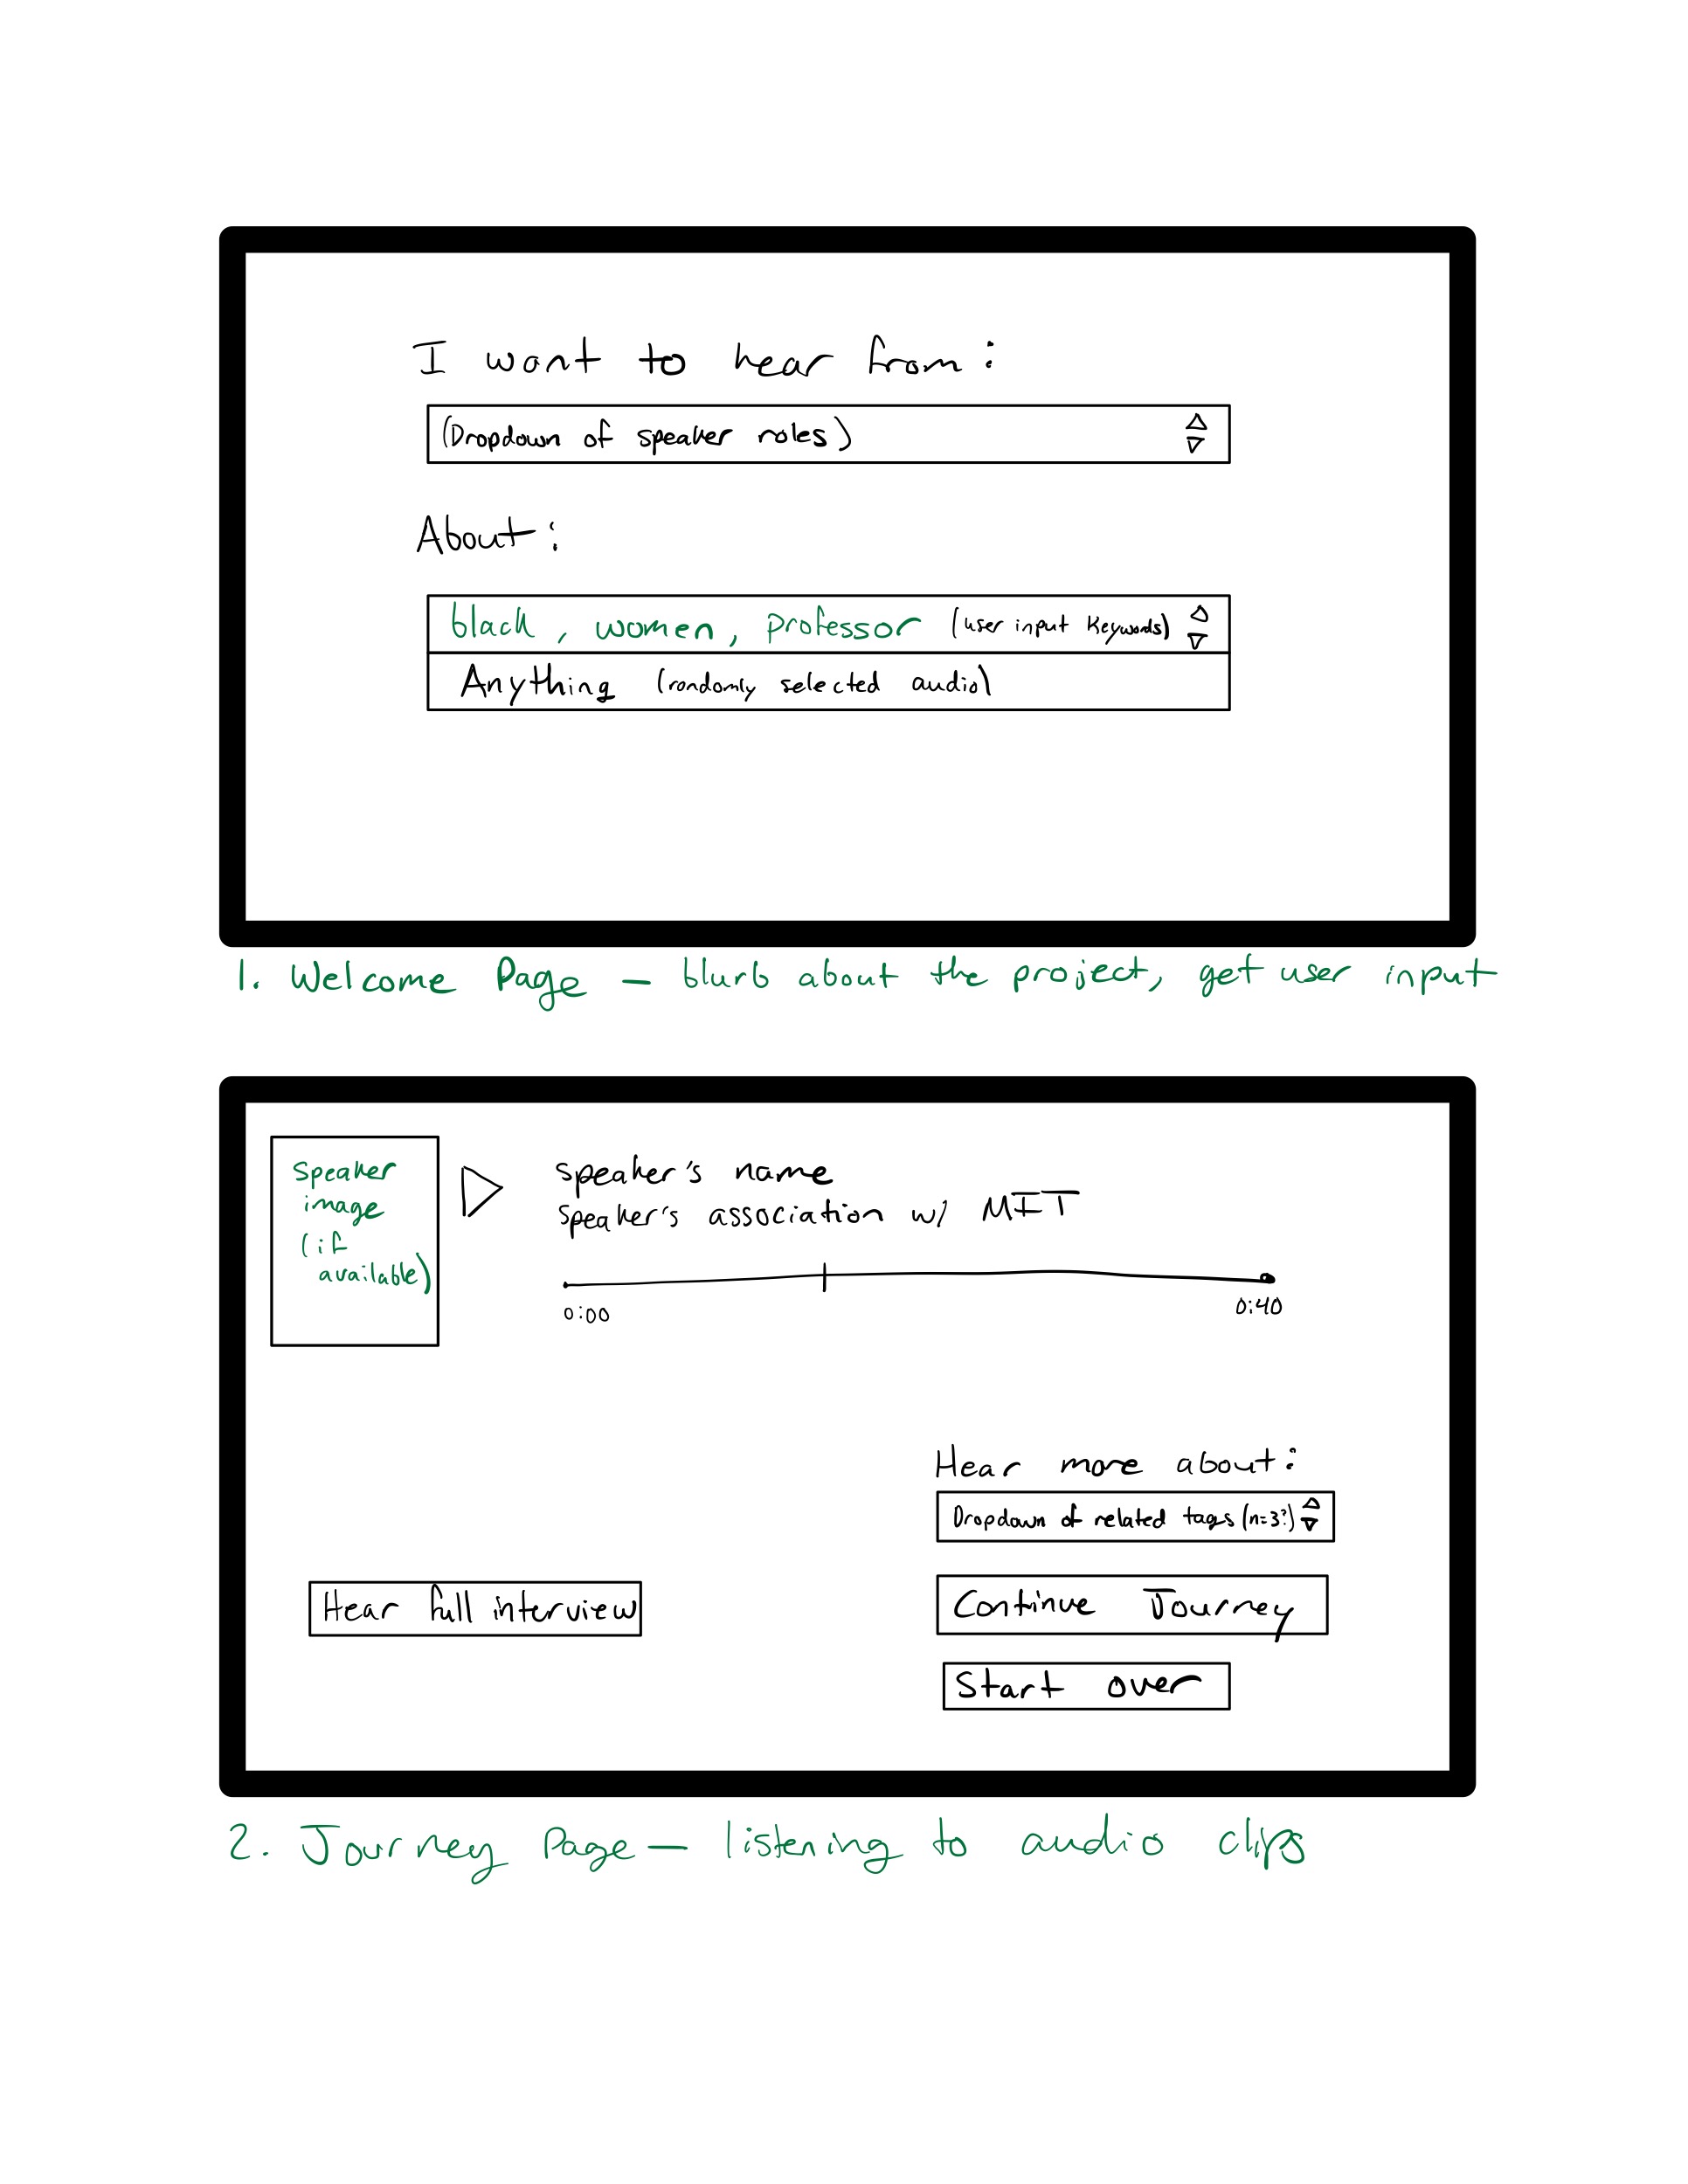 I want to hear from:
(Dropdown of speaker roles)
About:
black, women, professor (user input keywords)
Anything (randomly selected audio)
1. Welcome Page - blurb about the project, get user input
speaker
image
(if
available)
speaker's name
speaker's association w/ MIT
0:00
0:40
Hear more about:
Dropdown of related tags (n=3?)
Hear full interview
Continue Journey
Start over
2. Journey Page - listening to audio clips